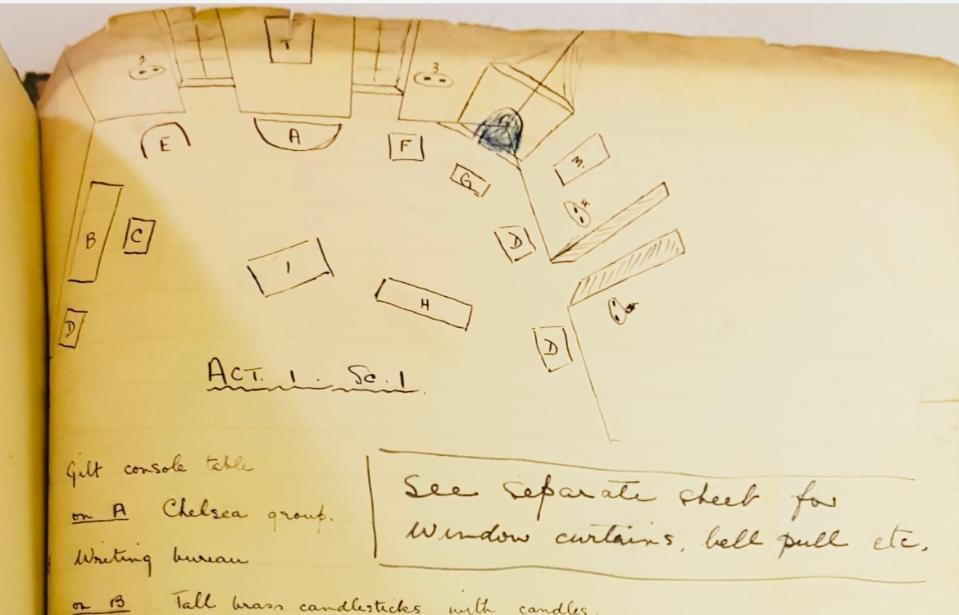 1
3
3
E
A
F
G
3.
B
C
D
D
1
H
D
ACT. 1. Sc. 1
Gilt console table
on A Chelsea group.
Writing bureau
on B Tall brass candlesticks with candles.
See separate sheet for
Window curtains, bell pull etc.